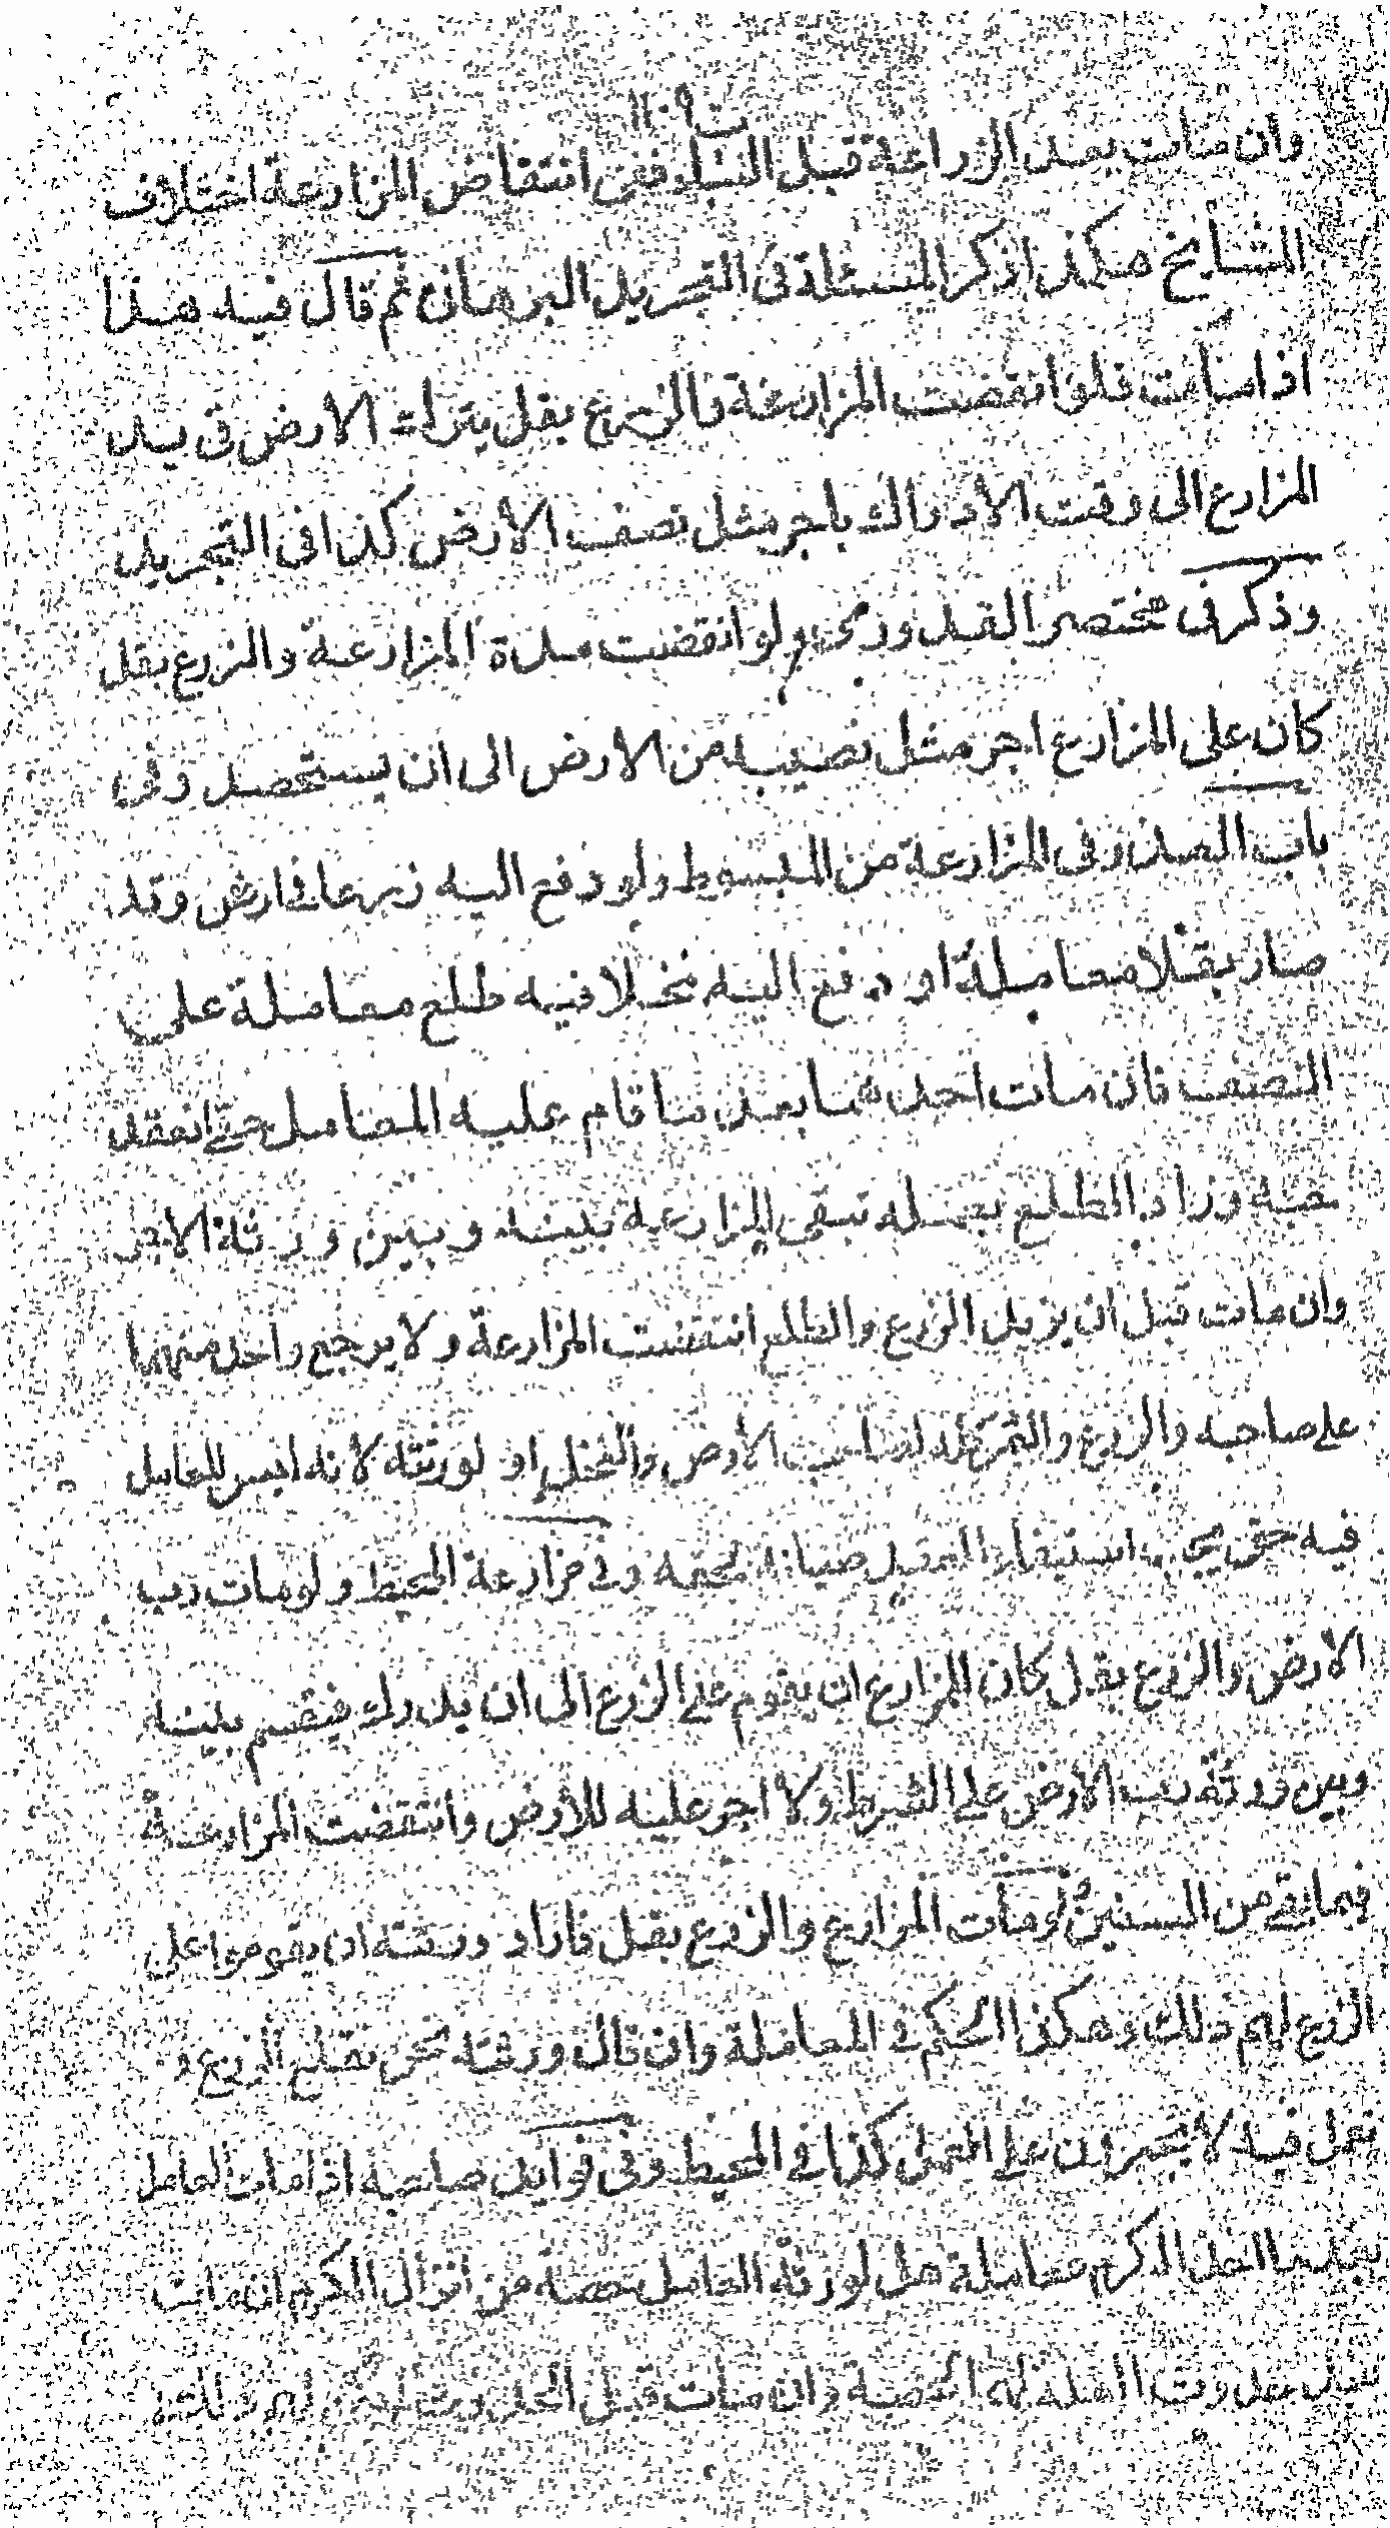 وان مات بعد الزراعة قبل النبات ففي انتقاض المزارعة اختلاف
المشايخ هكذا ذكر المسئلة في التجريد البرهاني ثم قال فيه هذا
اذا مات فلو انقضت المزارعة والزرع بقل يترك الارض في يد
المزارع الى وقت الادراك باجر مثل نصف الارض كذا في التجريد
وذكر في مختصر القدوري ولو انقضت مدة المزارعة والزرع بقل
كان على المزارع اجر مثل نصيبه من الارض الى ان يستحصل وفي
باب العذر في المزارعة من المبسوط ولو دفع اليه زرعا في ارض وقد
صار بقلا معاملة او دفع اليه نخلا فيه طلع معاملة على
النصف فان مات احدهما بعد ما قام عليه المعامل حتى انعقد
حبه وزاد الطلع بعمله تبقى المزارعة بينه وبين ورثة الاخر
وان مات قبل ان يزيد الزرع والطلع انتقضت المزارعة ولا يرجع واحد منهما
على صاحبه والزرع والثمر كله لصاحب الارض والنخل او لورثته لانه ليس للعامل
فيه حق يجب استيفاء العقد صيانة لحقه وفي مزارعة المحيط ولو مات رب
الارض والزرع بقل كان المزارع ان يقوم على الزرع الى ان يدرك فيقسم بينه
وبين ورثة رب الارض على الشرط ولا اجر عليه للارض وانتقضت المزارعة
فيما بقي من السنين ولو مات المزارع والزرع بقل فاراد ورثته ان يقوموا على
الزرع لهم ذلك وهكذا الحكم في المعاملة وان قال ورثته نحن نقلع الزرع و
نعمل فيه لا يجبرون على العمل كذا في المحيط وفي فوائد صاحبه اذا مات العامل
العمل الكرم معاملة هل لورثة العامل حصة من انزال الكرم ان مات
له الحصة وان مات قبل